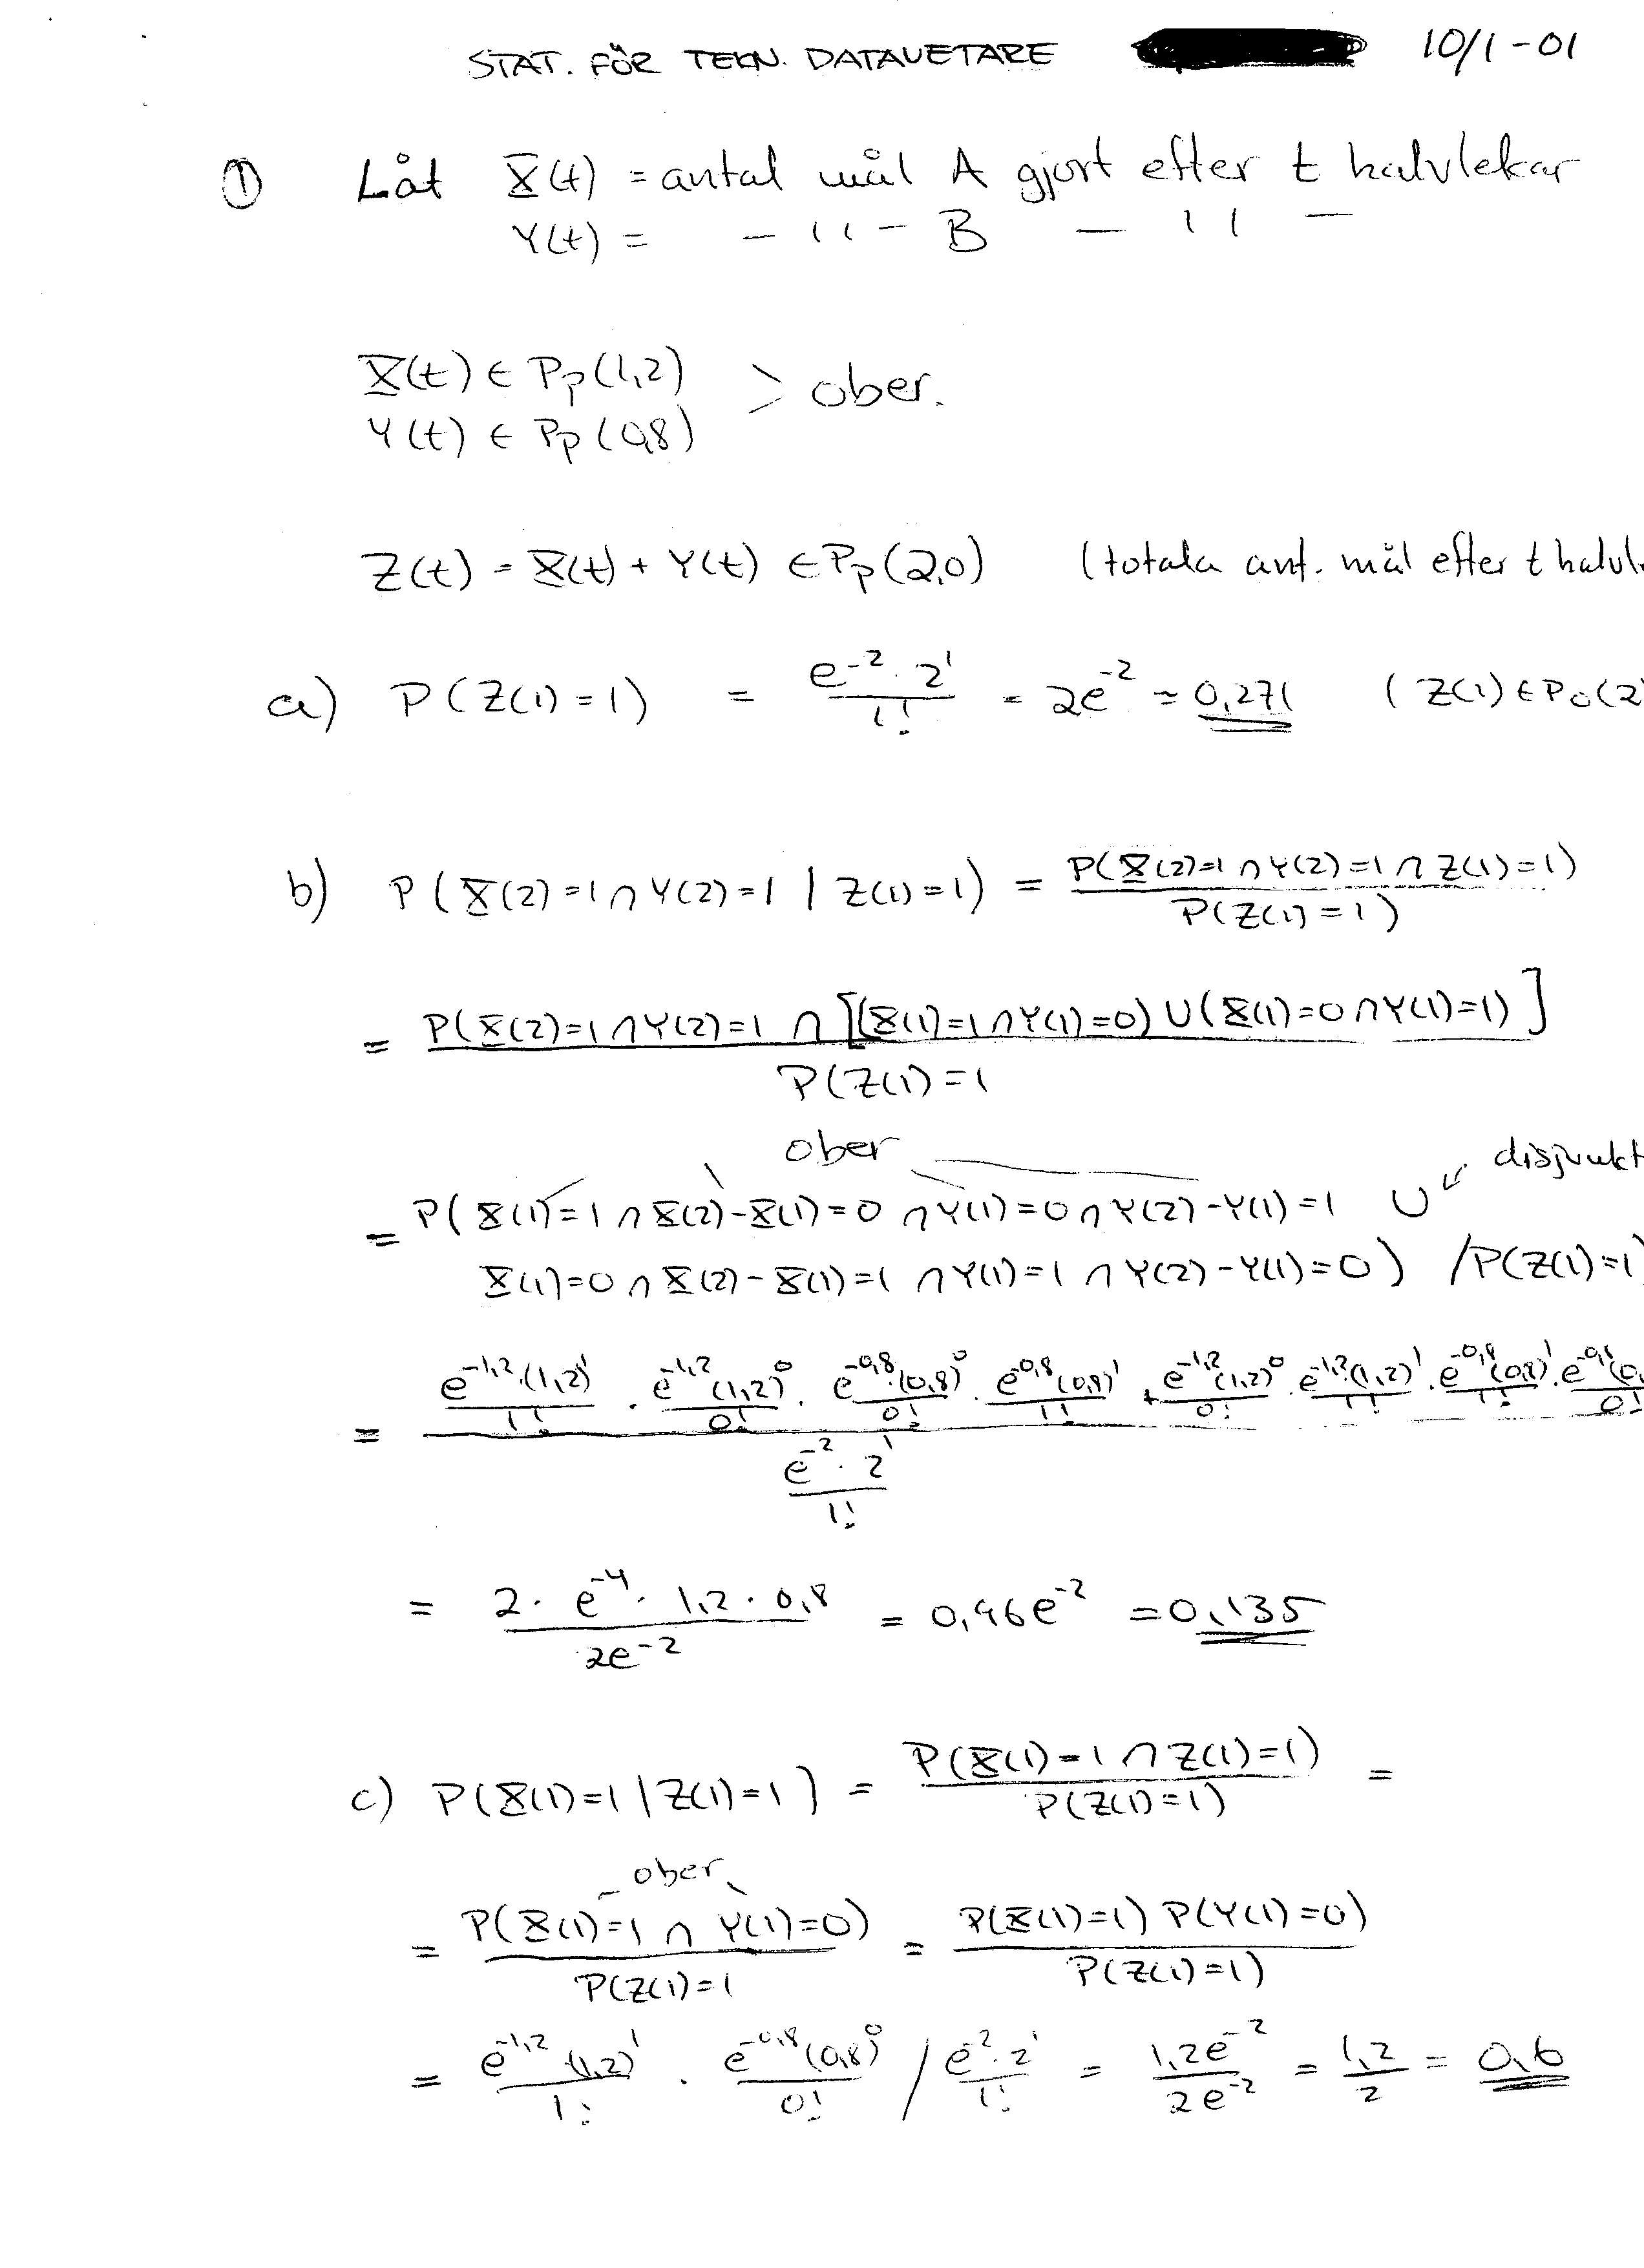 STAT. FÖR TEKN. DATAVETARE 10/1-01
① Låt X(t) = antal mål A gjort efter t halvlekar
Y(t) = -11- B - 11 -
X(t) ∈ Pp(1,2)
> ober.
Y(t) ∈ Pp(0,8)
Z(t) = X(t) + Y(t) ∈ Pp(2,0) (totala ant. mål efter t halvl.
a) P(Z(1)=1) = e^-2 · 2^1 / 1! = 2e^-2 = 0,271 (Z(1) ∈ Po(2)
b) P(X(2)=1 ∩ Y(2)=1 | Z(1)=1) = P(X(2)=1 ∩ Y(2)=1 ∩ Z(1)=1) / P(Z(1)=1)
= P(X(2)=1 ∩ Y(2)=1 ∩ [(X(1)=1 ∩ Y(1)=0) ∪ (X(1)=0 ∩ Y(1)=1)] / P(Z(1)=1
ober disjunkt
= P(X(1)=1 ∩ X(2)-X(1)=0 ∩ Y(1)=0 ∩ Y(2)-Y(1)=1 ∪
X(1)=0 ∩ X(2)-X(1)=1 ∩ Y(1)=1 ∩ Y(2)-Y(1)=0) /P(Z(1)=1)
= e^-1,2·(1,2)^1 / 1! · e^-1,2 (1,2)^0 / 0! · e^-0,8·(0,8)^0 / 0! · e^-0,8 (0,8)^1 / 1! + e^-1,2 (1,2)^0 / 0! · e^-1,2·(1,2)^1 / 1! · e^-0,8 (0,8)^1 / 1! · e^-0,8 (0, / 0!
e^-2 · 2^1 / 1!
= 2 · e^-4 · 1,2 · 0,8 / 2e^-2 = 0,96e^-2 = 0,135
c) P(X(1)=1 | Z(1)=1) = P(X(1)=1 ∩ Z(1)=1) / P(Z(1)=1) =
ober
= P(X(1)=1 ∩ Y(1)=0) / P(Z(1)=1 = P(X(1)=1) P(Y(1)=0) / P(Z(1)=1)
= e^-1,2 (1,2)^1 / 1! · e^-0,8 (0,8)^0 / 0! / e^-2 · 2^1 / 1! = 1,2e^-2 / 2e^-2 = 1,2 / 2 = 0,6